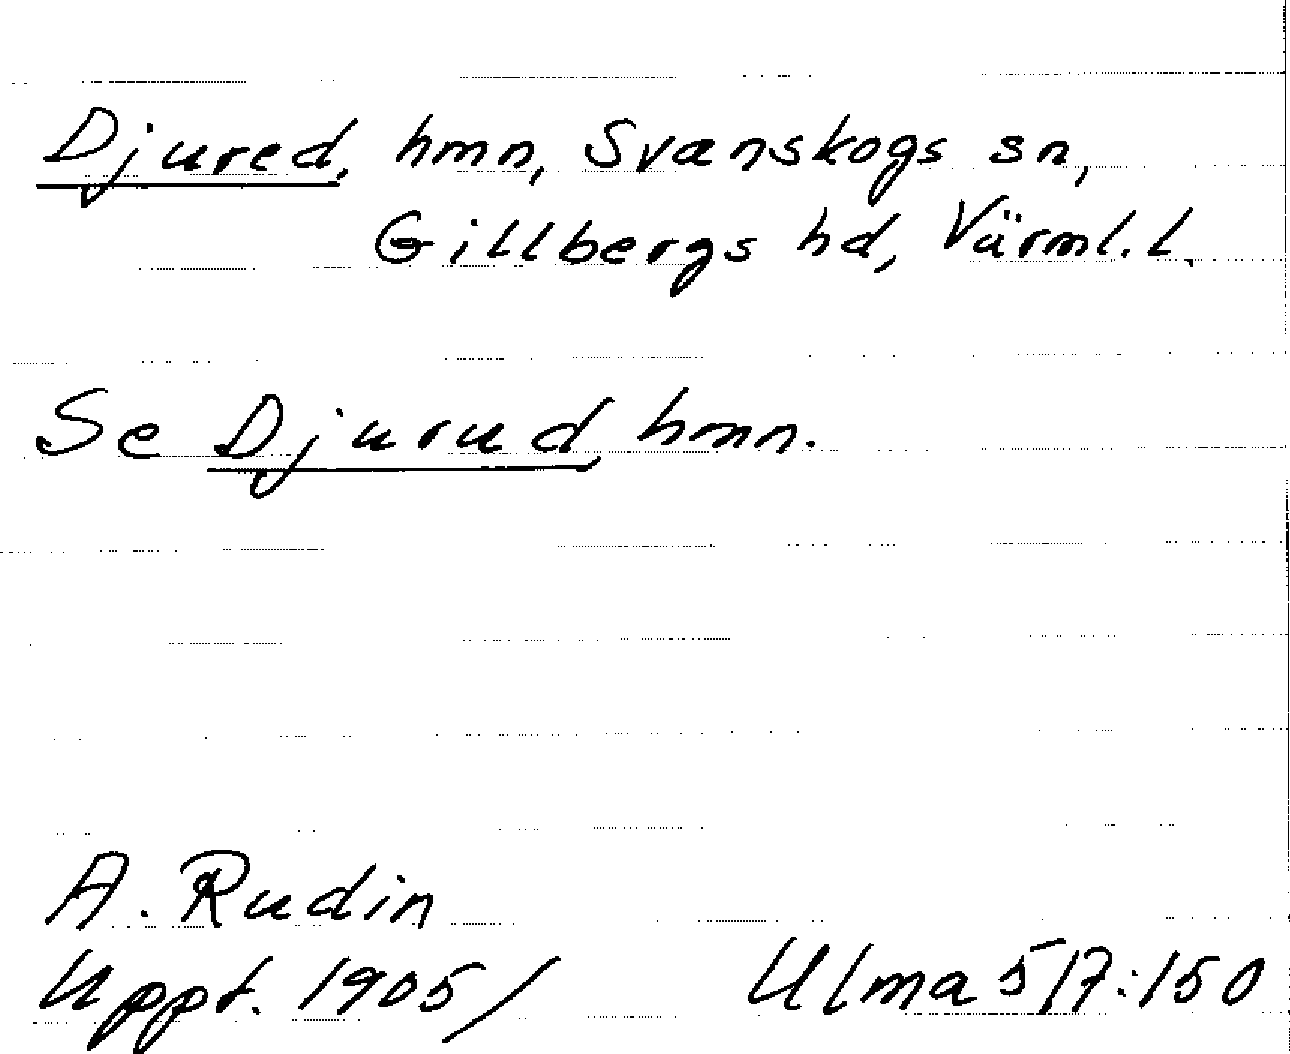 Djured, hmn, Svanskogs sn,
Gillbergs hd, Värml. l.
Se Djurud hmn.
A. Rudin
Uppt. 1905/ Ulma 517:150